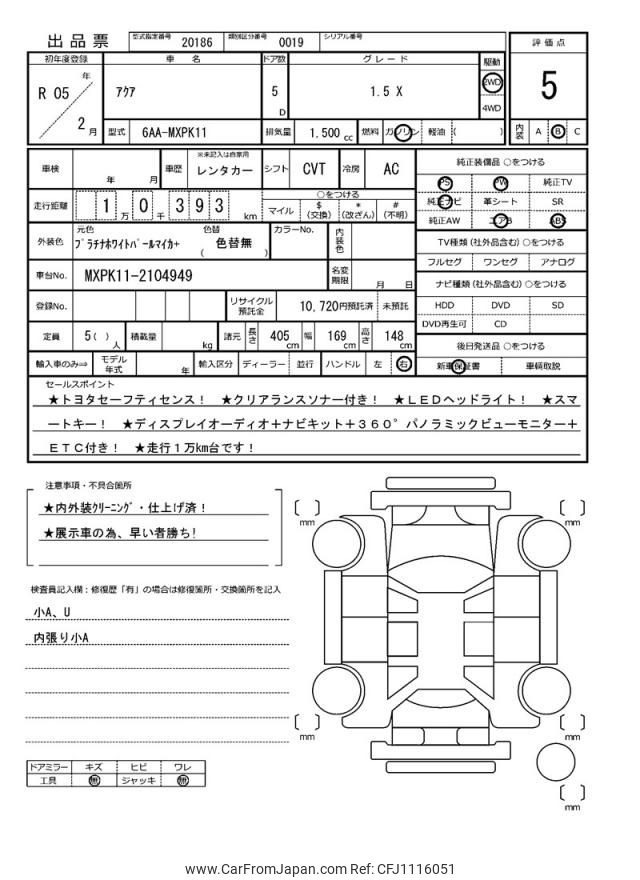 出品票 型式指定番号 20186 類別区分番号 0019 シリアル番号
評価点
5
内装 A B C
初年度登録 車名 ドア数 グレード 駆動
R 05 年 2 月
アクア 5 D 1.5 X 2WD 4WD
型式 6AA-MXPK11 排気量 1.500 cc 燃料 ガソリン 軽油 ( )
車検 年 月 車歴 ※未記入は自家用 レンタカー シフト CVT 冷房 AC
走行距離 1 万 0 千 3 9 3 km
○をつける
マイル $ (交換) * (改ざん) # (不明)
外装色 元色 プラチナホワイトパールマイカ+ 色替 ( 色替無 ) カラーNo. 内装色
車台No. MXPK11-2104949 名変期限 月 日
登録No. リサイクル預託金 10,720円預託済 未預託
定員 5( ) 人 積載量 kg 諸元 長さ 405 cm 幅 169 cm 高さ 148 cm
輸入車のみ⇒ モデル年式 年 輸入区分 ディーラー 並行 ハンドル 左 右
純正装備品 ○をつける
PS PW 純正TV
純正ナビ 革シート SR
純正AW エアB ABS
TV種類(社外品含む)○をつける
フルセグ ワンセグ アナログ
ナビ種類(社外品含む)○をつける
HDD DVD SD
DVD再生可 CD
後日発送品 ○をつける
新車保証書 車輌取説
セールスポイント
★トヨタセーフティセンス! ★クリアランスソナー付き! ★LEDヘッドライト! ★スマ
ートキー! ★ディスプレイオーディオ+ナビキット+360°パノラミックビューモニター+
ETC付き! ★走行1万km台です!
注意事項・不具合箇所
★内外装クリーニング・仕上げ済!
★展示車の為、早い者勝ち!
検査員記入欄:修復歴「有」の場合は修復箇所・交換箇所を記入
小A、U
内張り小A
ドアミラー キズ ヒビ ワレ
工具 無 ジャッキ 無
mm
mm
mm
mm
mm
www.CarFromJapan.com Ref: CFJ1116051